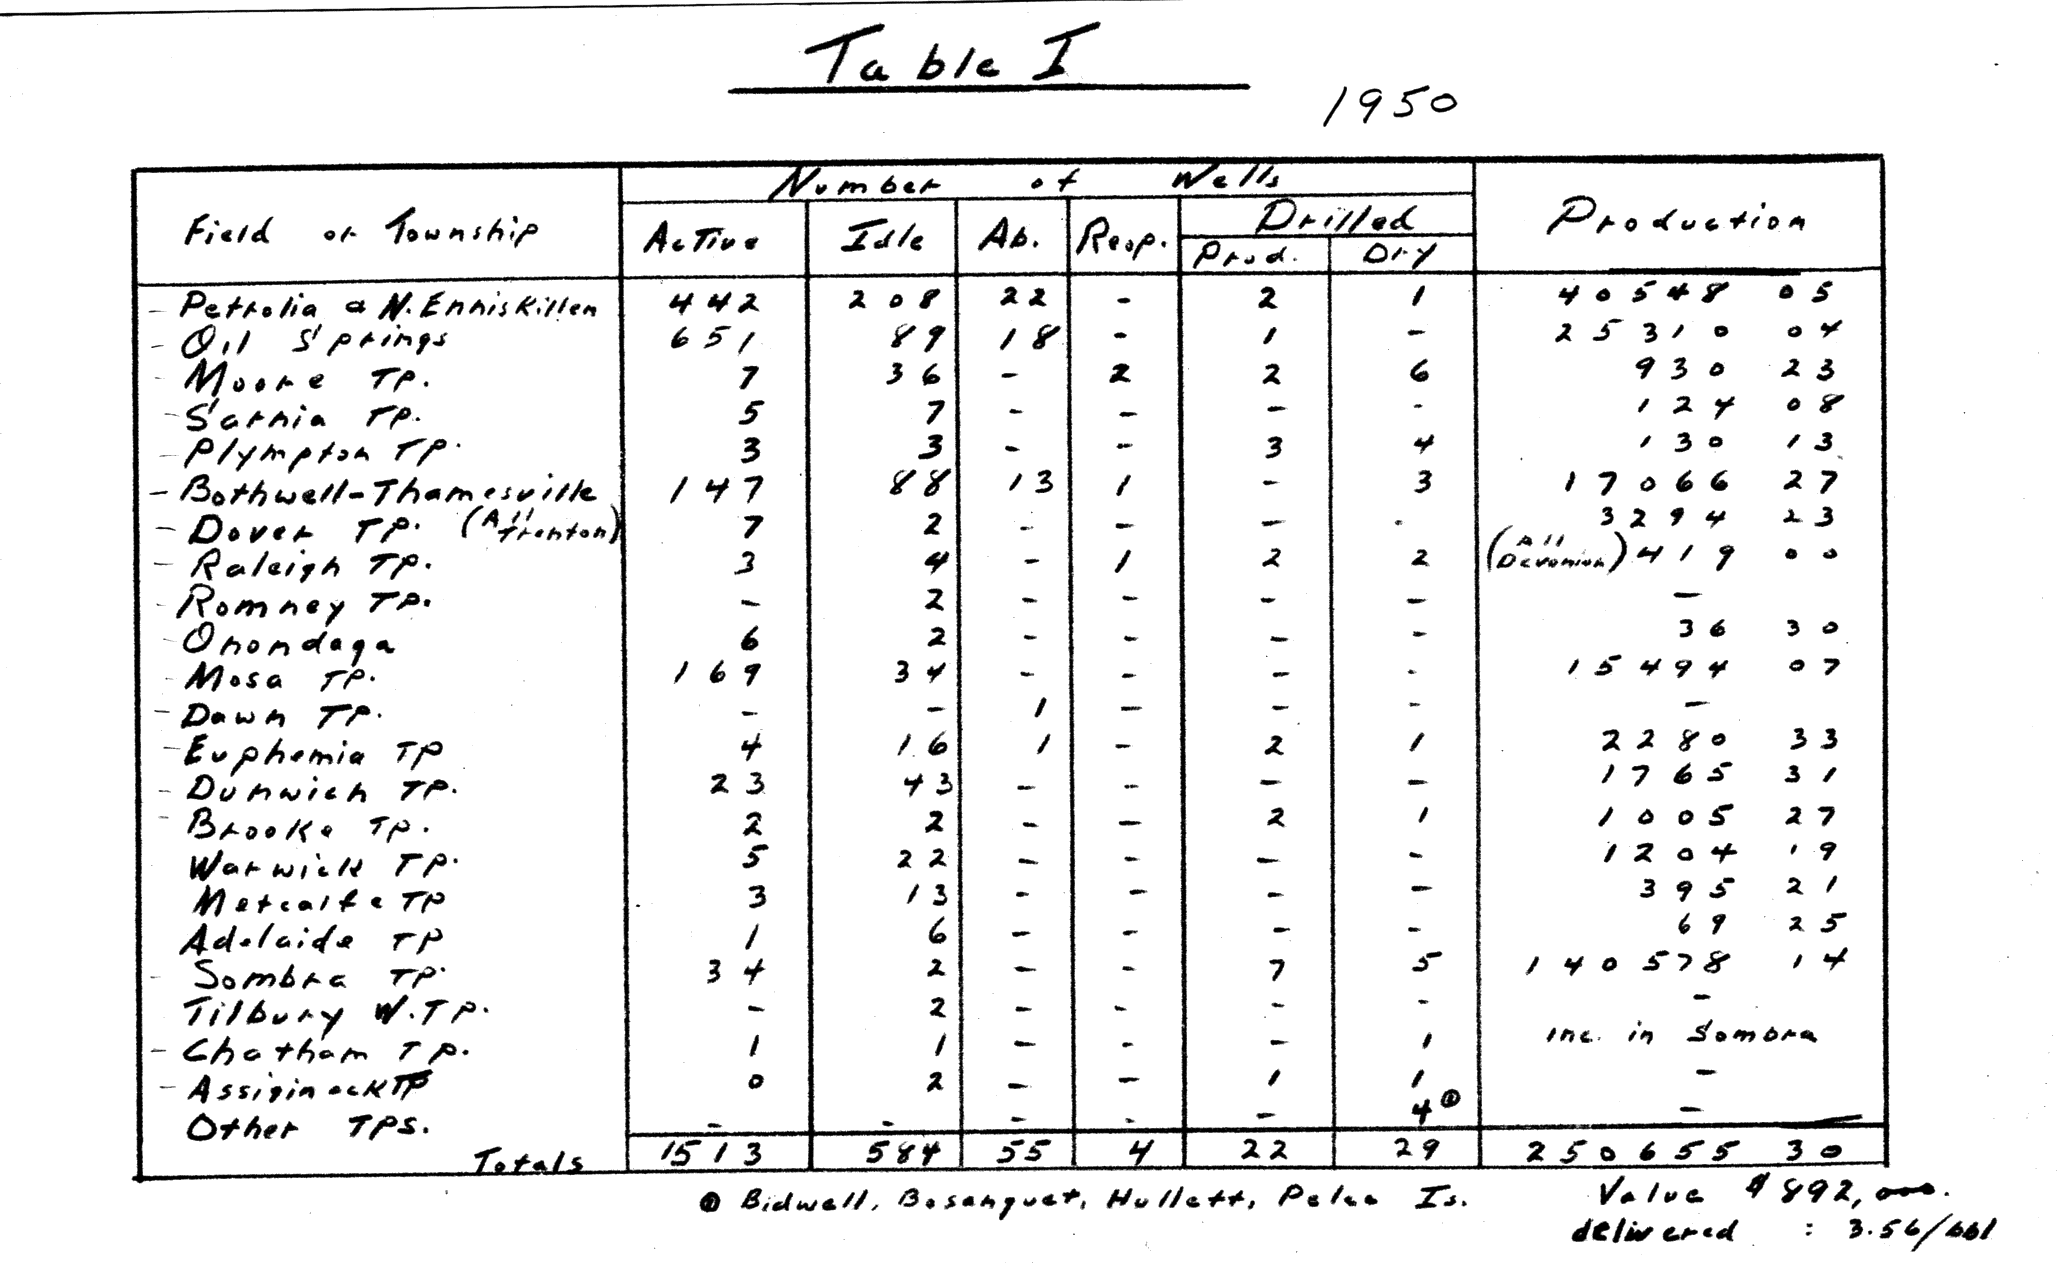 Table I
1950
Number of Wells
Field or Township Active Idle Ab. Reop. Drilled Production
Prod. Dry
- Petrolia & N. Enniskillen 442 208 22 - 2 1 40548 05
- Oil Springs 651 89 18 - 1 - 25310 04
- Moore TP. 7 36 - 2 2 6 930 23
- Sarnia TP. 5 7 - - - - 124 08
- Plympton TP. 3 3 - - 3 4 130 13
- Bothwell-Thamesville 147 88 13 1 - 3 17066 27
- Dover TP. (All Trenton) 7 2 - - - - 3294 23
- Raleigh TP. 3 4 - 1 2 2 (All Devonian) 419 00
- Romney TP. - 2 - - - - -
- Onondaga 6 2 - - - - 36 30
- Mosa TP. 169 34 - - - - 15494 07
- Dawn TP. - - 1 - - - -
- Euphemia TP 4 16 1 - 2 1 2280 33
- Dunwich TP. 23 43 - - - - 1765 31
- Brooke TP. 2 2 - - 2 1 1005 27
Warwick TP. 5 22 - - - - 1204 19
Metcalfe TP 3 13 - - - - 395 21
Adelaide TP 1 6 - - - - 69 25
- Sombra TP. 34 2 - - 7 5 140578 14
Tilbury W. TP. - 2 - - - - -
- Chatham TP. 1 1 - - - 1 inc. in Sombra
- Assiginack TP 0 2 - - 1 1 -
Other TPS. - - - - - 4① -
Totals 1513 584 55 4 22 29 250655 30
① Bidwell, Bosanquet, Hullett, Pelee Is.
Value $892,000.
delivered : 3.56/bbl